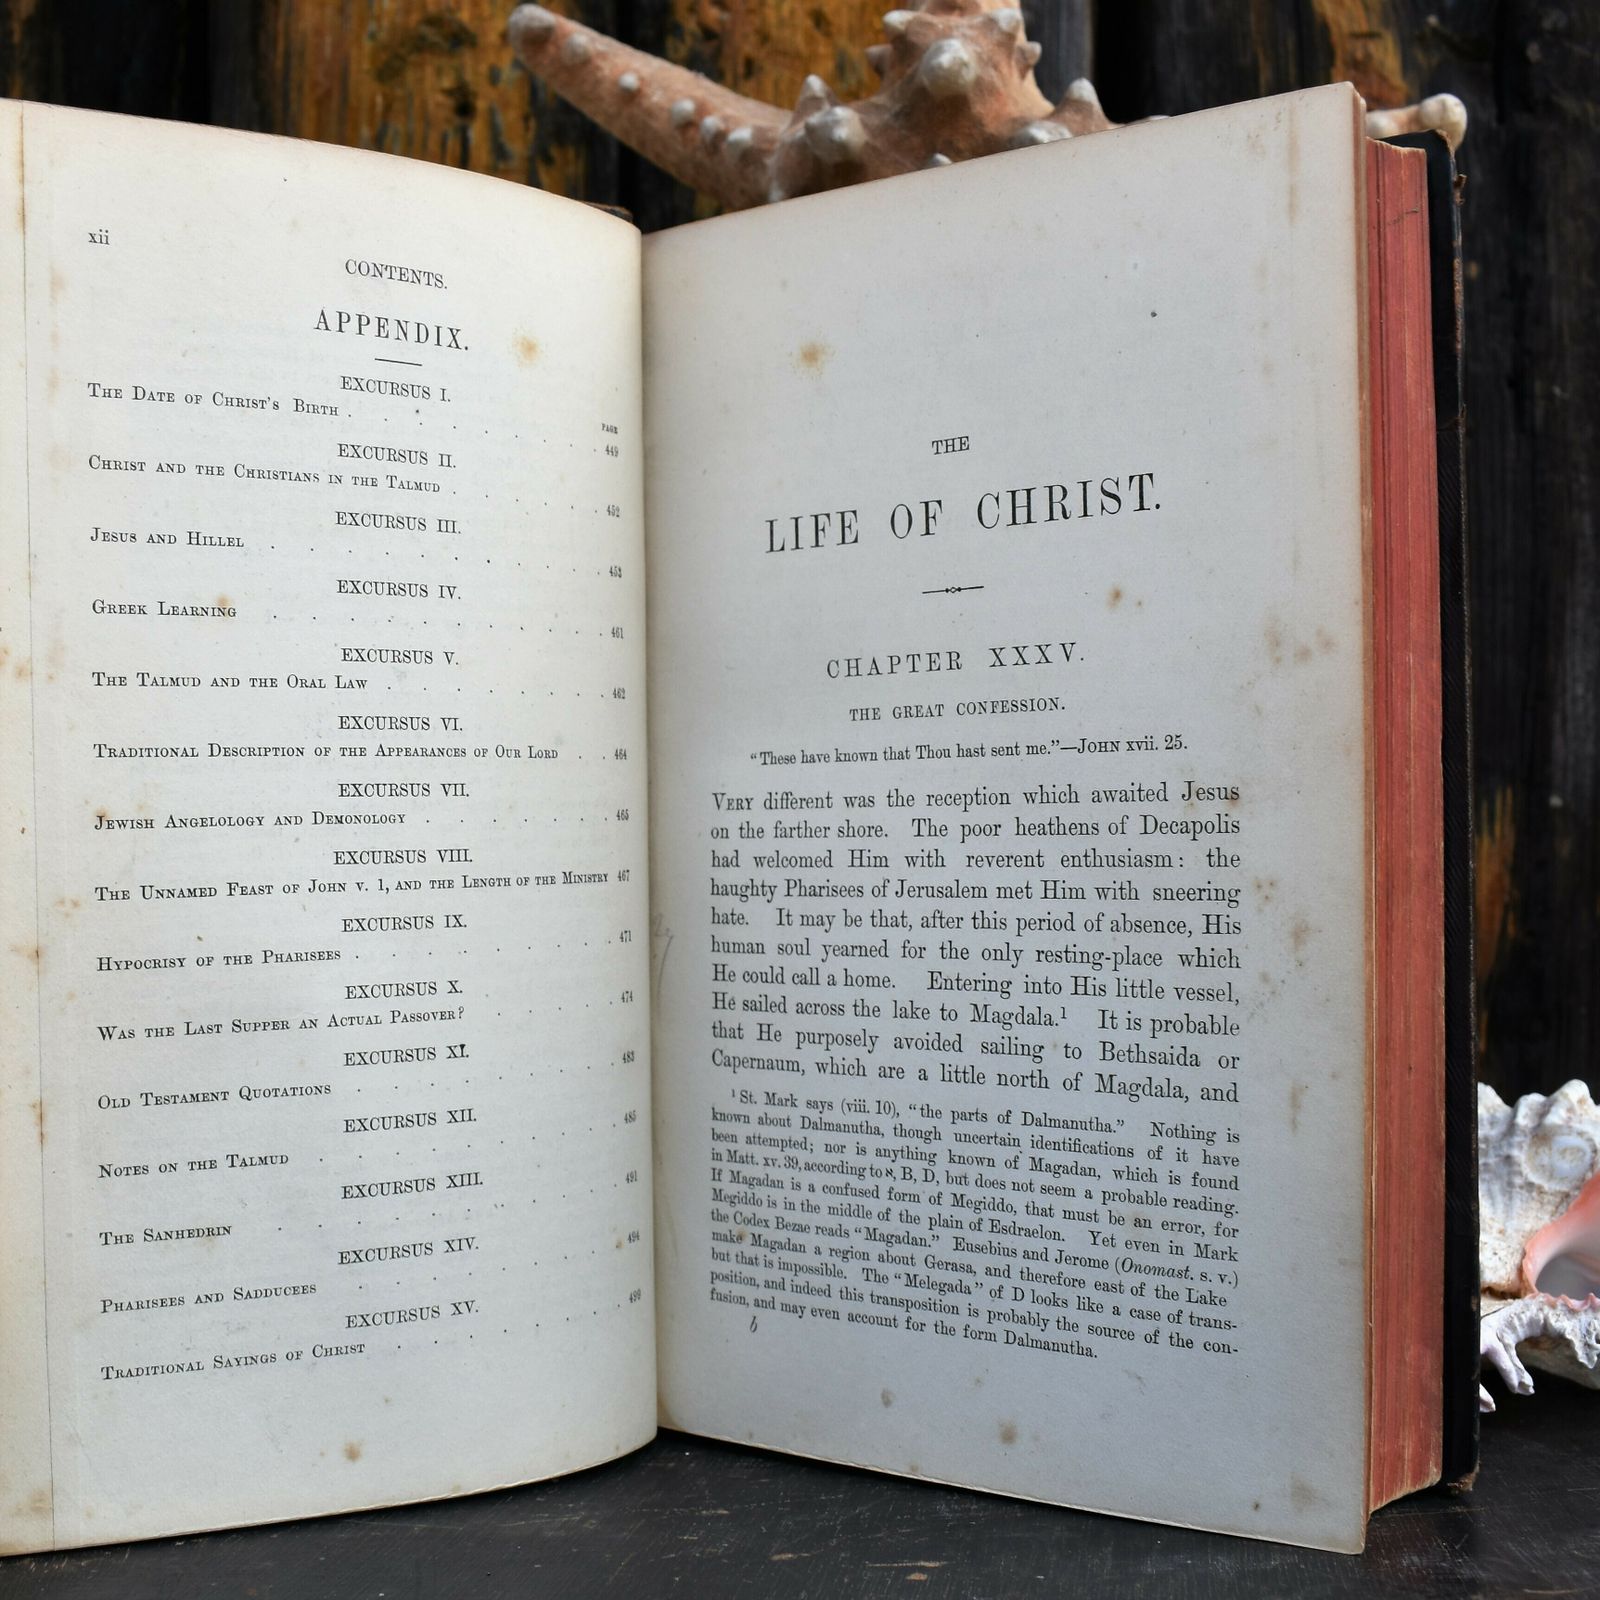 xii
CONTENTS.
APPENDIX.
EXCURSUS I.
PAGE
The Date of Christ's Birth . . . . . . . . 449
EXCURSUS II.
Christ and the Christians in the Talmud . . . . . . 452
EXCURSUS III.
Jesus and Hillel . . . . . . . . . . 453
EXCURSUS IV.
Greek Learning . . . . . . . . . . 461
EXCURSUS V.
The Talmud and the Oral Law . . . . . . . 462
EXCURSUS VI.
Traditional Description of the Appearances of Our Lord . . 464
EXCURSUS VII.
Jewish Angelology and Demonology . . . . . . 465
EXCURSUS VIII.
The Unnamed Feast of John v. 1, and the Length of the Ministry 467
EXCURSUS IX.
Hypocrisy of the Pharisees . . . . . . . 471
EXCURSUS X.
Was the Last Supper an Actual Passover? . . . . 474
EXCURSUS XI.
Old Testament Quotations . . . . . . . 483
EXCURSUS XII.
Notes on the Talmud . . . . . . . . 485
EXCURSUS XIII.
The Sanhedrin . . . . . . . . . 491
EXCURSUS XIV.
Pharisees and Sadducees . . . . . . . 494
EXCURSUS XV.
Traditional Sayings of Christ . . . . . . 499
THE
LIFE OF CHRIST.
CHAPTER XXXV.
THE GREAT CONFESSION.
“These have known that Thou hast sent me.”—JOHN xvii. 25.
VERY different was the reception which awaited Jesus
on the farther shore. The poor heathens of Decapolis
had welcomed Him with reverent enthusiasm: the
haughty Pharisees of Jerusalem met Him with sneering
hate. It may be that, after this period of absence, His
human soul yearned for the only resting-place which
He could call a home. Entering into His little vessel,
He sailed across the lake to Magdala.¹ It is probable
that He purposely avoided sailing to Bethsaida or
Capernaum, which are a little north of Magdala, and
¹ St. Mark says (viii. 10), “the parts of Dalmanutha.” Nothing is
known about Dalmanutha, though uncertain identifications of it have
been attempted; nor is anything known of Magadan, which is found
in Matt. xv. 39, according to א, B, D, but does not seem a probable reading.
If Magadan is a confused form of Megiddo, that must be an error, for
Megiddo is in the middle of the plain of Esdraelon. Yet even in Mark
the Codex Bezae reads “Magadan.” Eusebius and Jerome (Onomast. s. v.)
make Magadan a region about Gerasa, and therefore east of the Lake
but that is impossible. The “Melegada” of D looks like a case of trans-
position, and indeed this transposition is probably the source of the con-
fusion, and may even account for the form Dalmanutha.
b